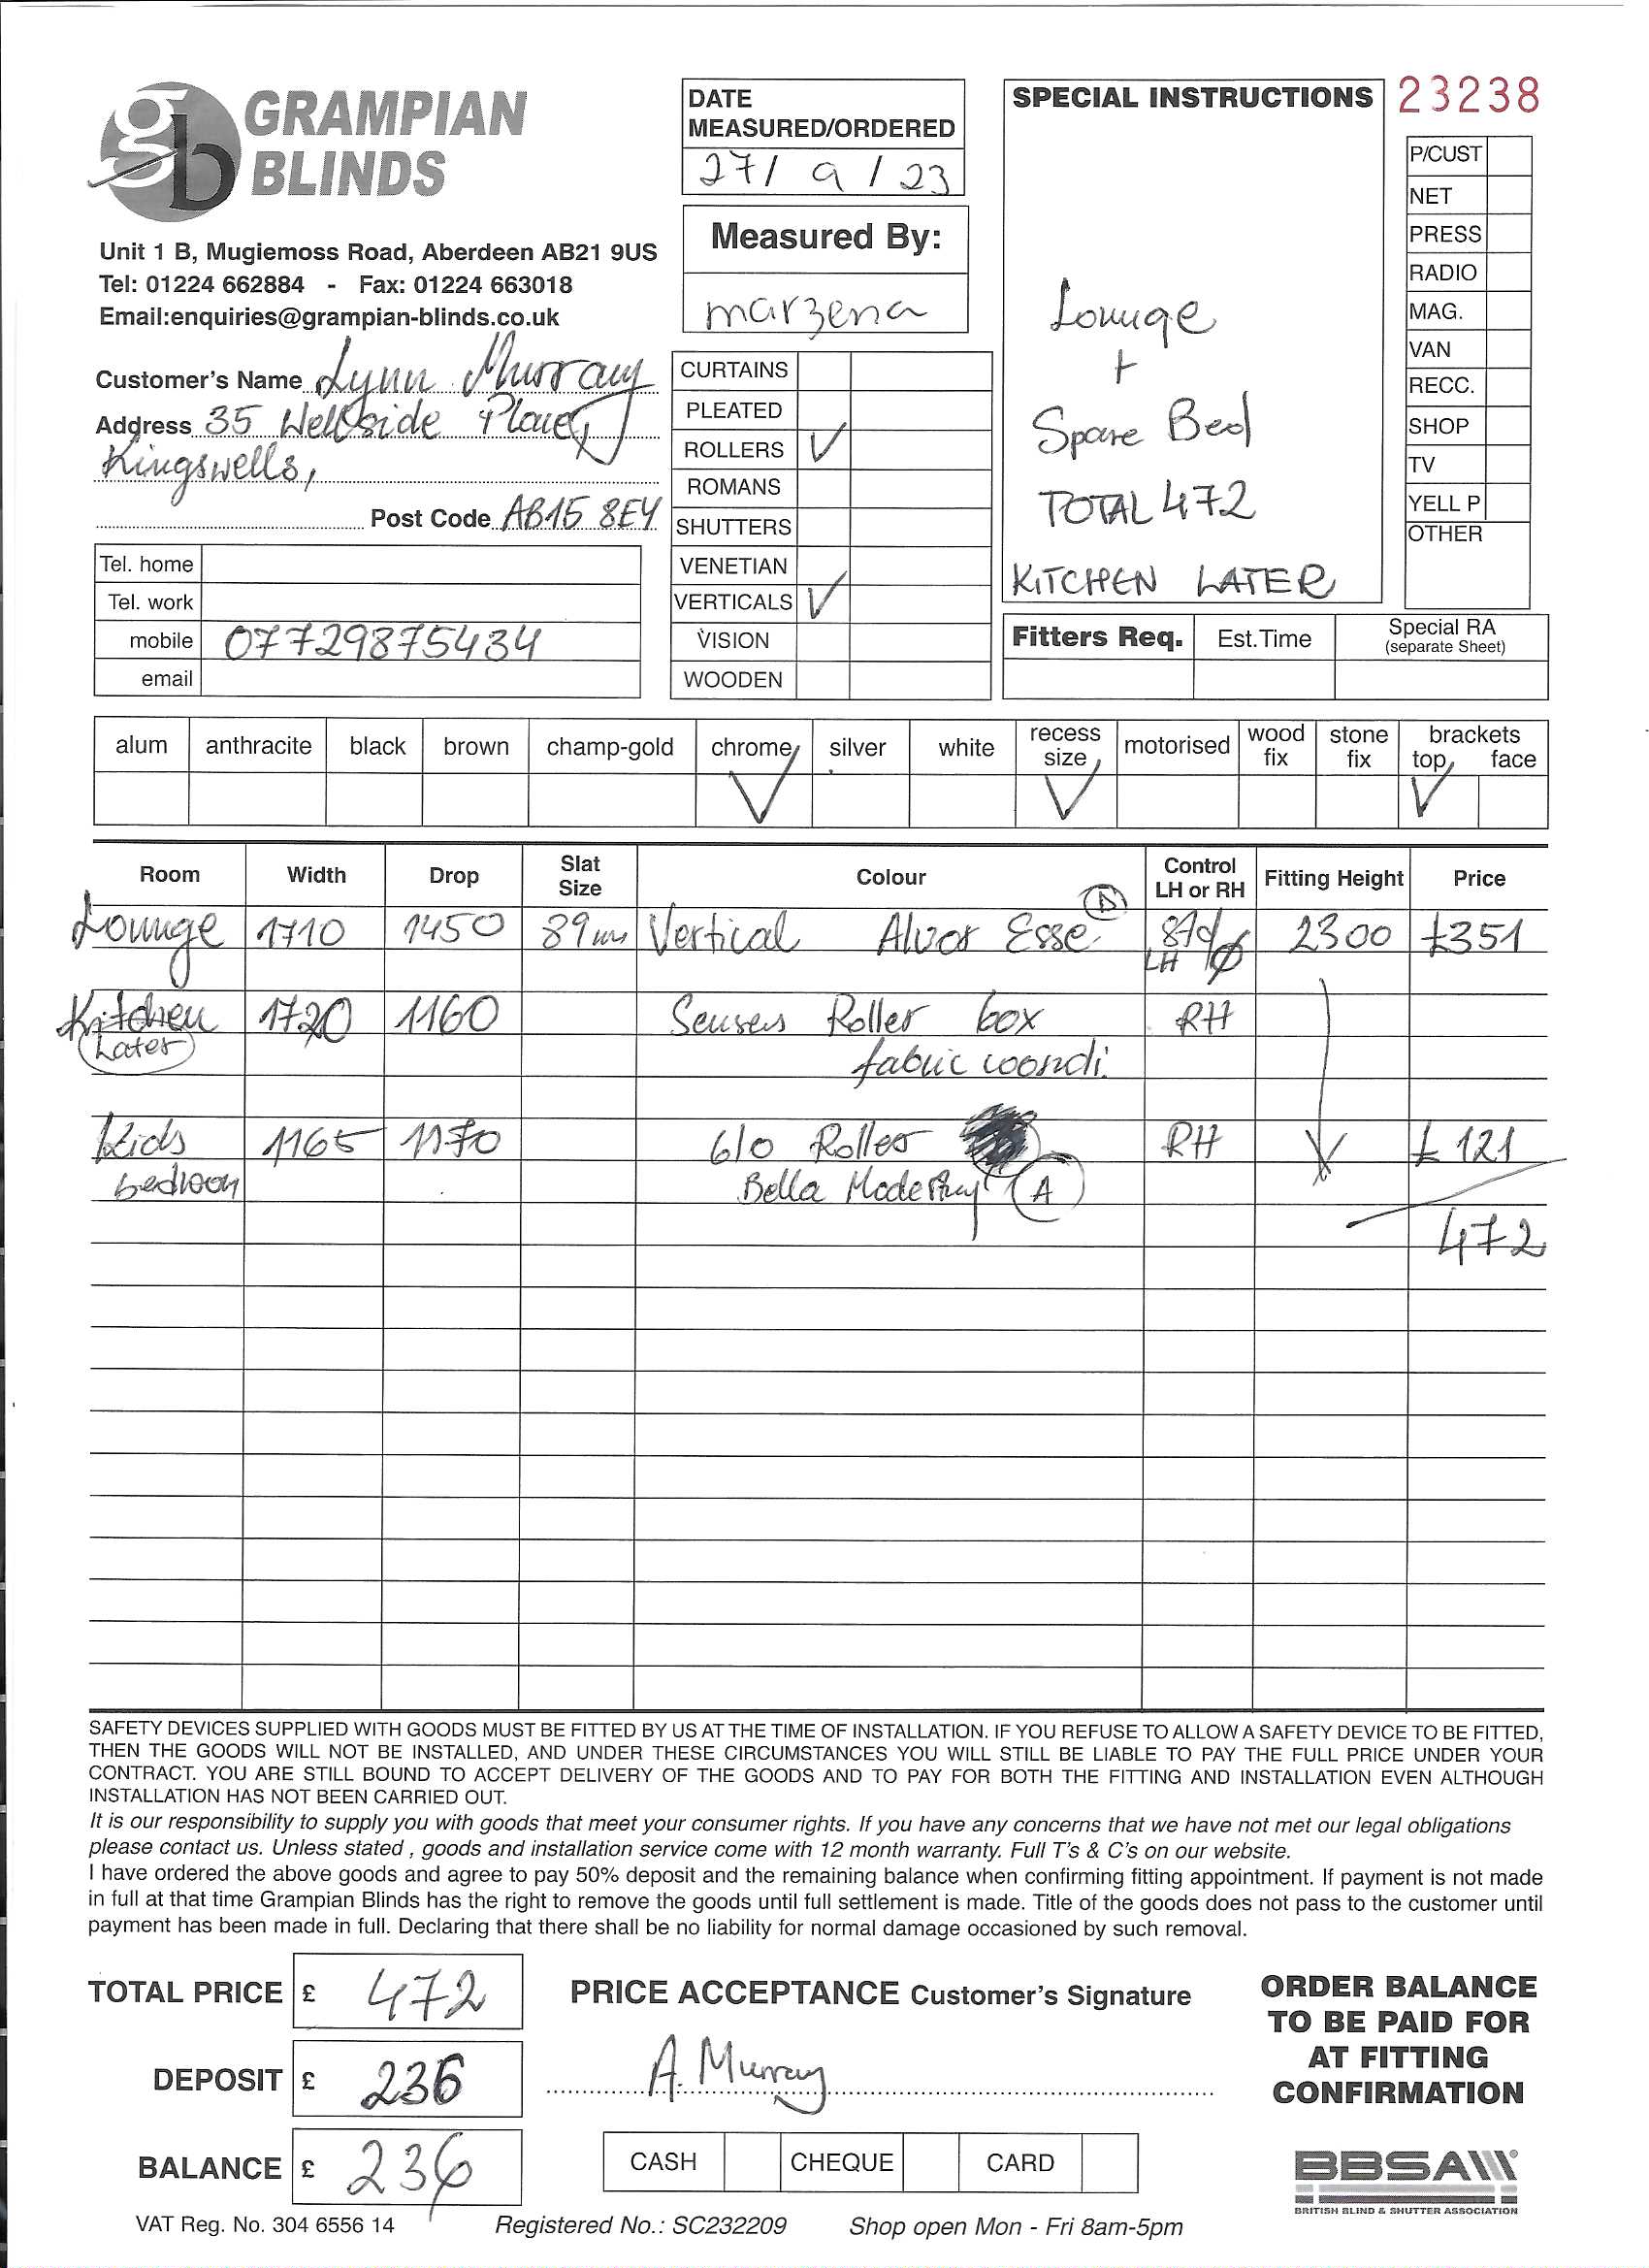 GRAMPIAN
BLINDS
Unit 1 B, Mugiemoss Road, Aberdeen AB21 9US
Tel: 01224 662884 - Fax: 01224 663018
Email:enquiries@grampian-blinds.co.uk
Customer's Name Lynn Murray
Address 35 Wellside Place,
Kingswells,
Post Code AB15 8EY
Tel. home
Tel. work
mobile 07729875434
email
DATE
MEASURED/ORDERED
27/ 9 / 23
Measured By:
marzena
CURTAINS
PLEATED
ROLLERS ✓
ROMANS
SHUTTERS
VENETIAN
VERTICALS ✓
VISION
WOODEN
SPECIAL INSTRUCTIONS
Lounge
+
Spare Bed
TOTAL 472
KITCHEN LATER
23238
P/CUST
NET
PRESS
RADIO
MAG.
VAN
RECC.
SHOP
TV
YELL P
OTHER
Fitters Req. Est.Time Special RA
(separate Sheet)
alum anthracite black brown champ-gold chrome ✓ silver white recess size ✓ motorised wood fix stone fix brackets top ✓ face
Room Width Drop Slat Size Colour Control LH or RH Fitting Height Price
Lounge 1710 1450 89mm Vertical Alvor Esse LH 2300 £351
Kitchen 1720 1160 Senses Roller box RH
Later fabric
Kids 1165 1170 Roller RH £121
bedroom Bella A
472
SAFETY DEVICES SUPPLIED WITH GOODS MUST BE FITTED BY US AT THE TIME OF INSTALLATION. IF YOU REFUSE TO ALLOW A SAFETY DEVICE TO BE FITTED,
THEN THE GOODS WILL NOT BE INSTALLED, AND UNDER THESE CIRCUMSTANCES YOU WILL STILL BE LIABLE TO PAY THE FULL PRICE UNDER YOUR
CONTRACT. YOU ARE STILL BOUND TO ACCEPT DELIVERY OF THE GOODS AND TO PAY FOR BOTH THE FITTING AND INSTALLATION EVEN ALTHOUGH
INSTALLATION HAS NOT BEEN CARRIED OUT.
It is our responsibility to supply you with goods that meet your consumer rights. If you have any concerns that we have not met our legal obligations
please contact us. Unless stated , goods and installation service come with 12 month warranty. Full T's & C's on our website.
I have ordered the above goods and agree to pay 50% deposit and the remaining balance when confirming fitting appointment. If payment is not made
in full at that time Grampian Blinds has the right to remove the goods until full settlement is made. Title of the goods does not pass to the customer until
payment has been made in full. Declaring that there shall be no liability for normal damage occasioned by such removal.
TOTAL PRICE £ 472
DEPOSIT £ 236
BALANCE £ 236
PRICE ACCEPTANCE Customer's Signature
A. Murray
CASH CHEQUE CARD
ORDER BALANCE
TO BE PAID FOR
AT FITTING
CONFIRMATION
BBSA
BRITISH BLIND & SHUTTER ASSOCIATION
VAT Reg. No. 304 6556 14 Registered No.: SC232209 Shop open Mon - Fri 8am-5pm